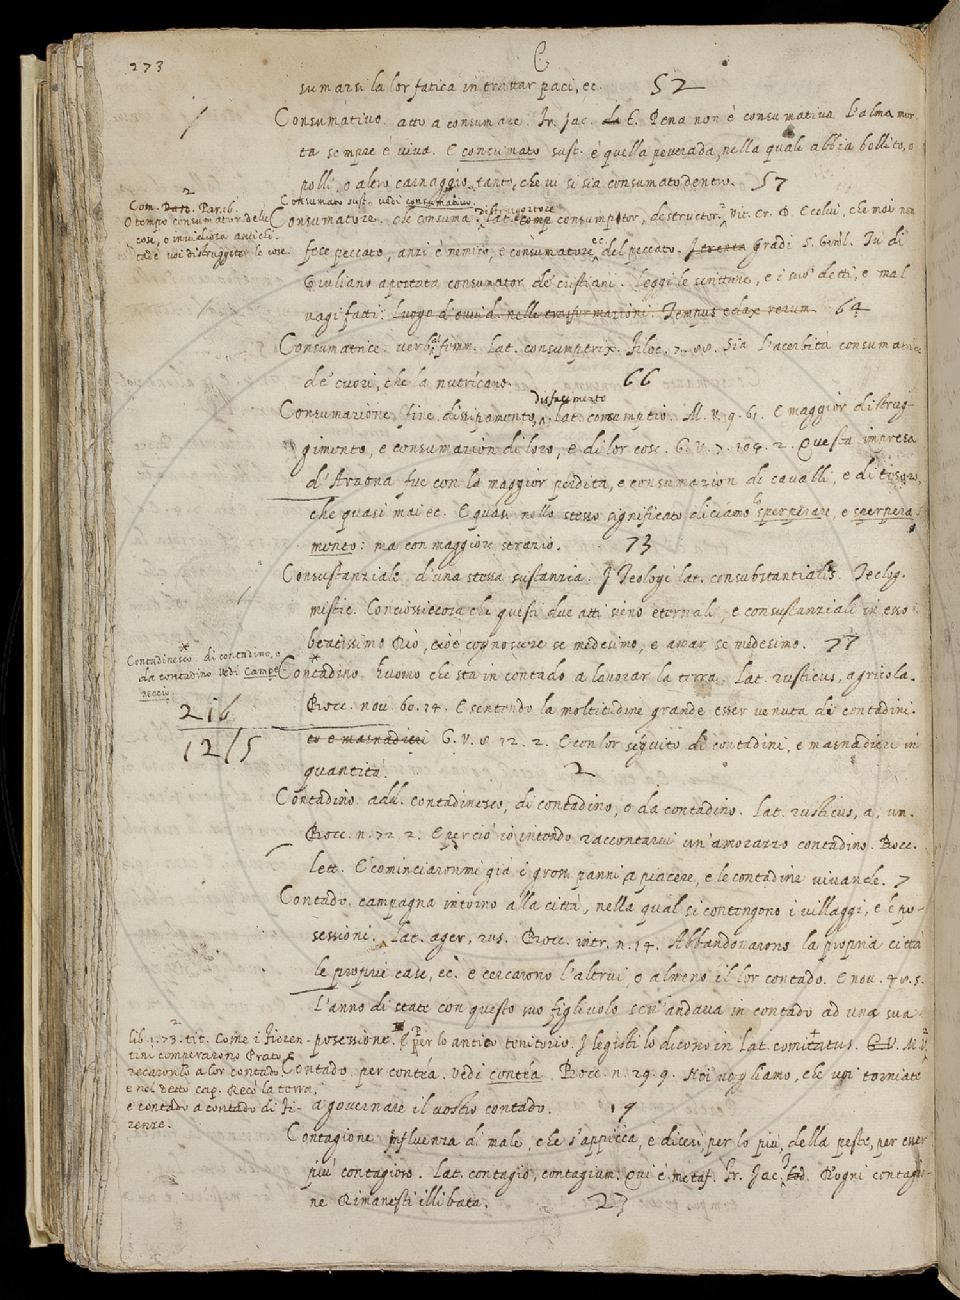 273
C
sumarsi la lor fatica in trattar paci, ec. 52
Consumativo. atto a consumare. Fr. Jac. T. Pena non è consumativa L'alma mor-
ta sempre è viva. E consumato sust. è quella peverada, nella quale abbia bollito, o
polli, o altro carnaggio, tanto, che vi si sia consumato dentro. 57
Consumato sust. vedi consumativo.
Consumatore. che consuma. distruggitore lat. consumptor, destructor. Vit. Cr. D. E colui, che mai non
fece peccato, anzi è nemico, e consumatore ec. del peccato. Gradi S. Girol. Tu di
Giuliano apostata consumator de' cristiani. Leggi le scritture, e i suo' detti, e mal
vagi fatti. Luogo d'ovvid. nelle trasformazioni. Tempus edax rerum 64
Com. Par. 16.
O tempo consumator delle
cose, o invidiosa antichi-
tade voi distruggete le cose.
Consumatrice. verbal femm. Lat. consumptrix. Filoc. 7. 88. Sia l'acerbità consumatrice
de' cuori, che la nutricano. 66
Consumazione, fine, dissipamento, disfacimento lat. consumptio. M. V. 9. 61. E maggior distrug-
gimento, e consumazion di loro, e di lor cose. G. V. 7. 104. 2. Questa impresa
d'Araona fue con la maggior perdita, e consumazion di cavalli, e di tesoro,
che quasi mai ec. E quasi nello stesso significato diciamo sperperare, e sperpera-
mento: ma con maggiore strazio. 73
Consustanziale. d'una stessa sustanzia. I Teologi lat. consubstantialis. Teolog.
mistic. Conciossiecosa che questi due atti sieno eternali, e consustanziali in esso
beatissimo Dio, cioè cognoscere se medesimo, e amar se medesimo. 77
Contadinesco di contadino, o
da contadino vedi Campe-
reccio
216
1215
Contadino. huomo che sta in contado a lavorar la terra. Lat. rusticus, agricola.
Bocc. nov. 60. 14. E sentendo la moltitudine grande esser venuta de' contadini.
G. V. 8. 72. 2. E con lor séguito di contadini, e masnadieri in
quantità. 2
Contadino add. contadinesco, di contadino, e da contadino. Lat. rusticus, a, um.
Bocc. n. 72. 2. E perciò io intendo raccontarvi un'amorazzo contadino. Bocc.
lett. E cominciaronmi già i grossi panni a piacere, e le contadine vivande. 7
Contado. campagna intorno alla città, nella qual si contengono i villaggi, e le po-
sessioni. Lat. ager, rus. Bocc. intr. n. 14. Abbandonarono la propria città
le proprie case, ec. e cercarono l'altrui, o almeno il lor contado. E nov. 48. 5.
L'anno di state con questo suo figlivolo sen'andava in contado ad una sua
posessione. E per lo antico territorio. I legisti lo dicono in Lat. comitatus. G. V. M. V.
lib. 1. 73. tit. Come i Fioren-
tini comperarono Prato, e
recaronlo a lor contado
e nel detto cap. Recò la terra,
e contado a contado di Fi-
renze.
Contado per contéa. vedi contéa. Bocc. n. 29. 9. Noi vogliamo, che voi torniate
a governare il vostro contado. 19
Contagione influenza di male, che s'appicca, e dicesi per lo più, della peste, per esser
più contagioso. Lat. contagio, contagium. Qui è metaf. Fr. Jac. D'ogni contagio-
ne Rimanesti illibata. 23